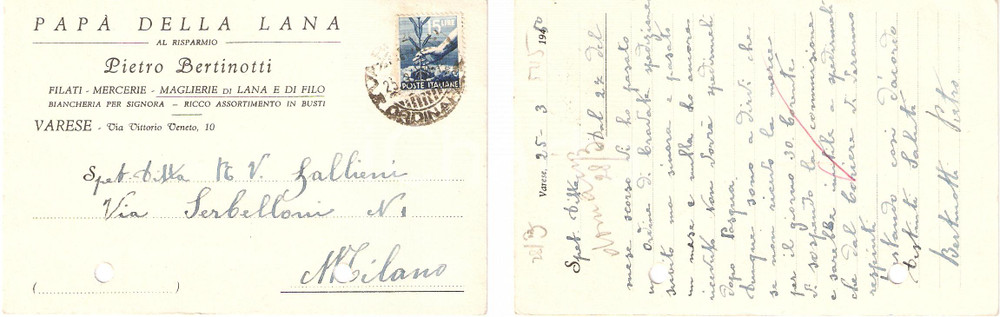 PAPÀ DELLA LANA
AL RISPARMIO
Pietro Bertinotti
FILATI - MERCERIE - MAGLIERIE DI LANA E DI FILO
BIANCHERIA PER SIGNORA - RICCO ASSORTIMENTO IN BUSTI
VARESE - Via Vittorio Veneto, 10
15 LIRE
POSTE ITALIANE
ORDINAR
Spet. Ditta M. V. Gallieni
Via Serbelloni N 1
Milano
Varese, 25 - 3 1950
Spet. Ditta
Dal 22 del
mese scorso vi ho passato
un Ordine di Cravatte spedizione
subito ma sinora è passato
un mese e nulla ho ancora
ricevuto Non dovrà spedirmeli
dopo Pasqua
dunque sono a dirvi che
se non ricevo la merce
per il giorno 30 corrente
vi sospendo la commissione
e sarebbe inutile a spedirmeli
che dal Corriere vi saranno
respinti
Restando così d'accordo
Distinti Saluti
Bertinotti Pietro